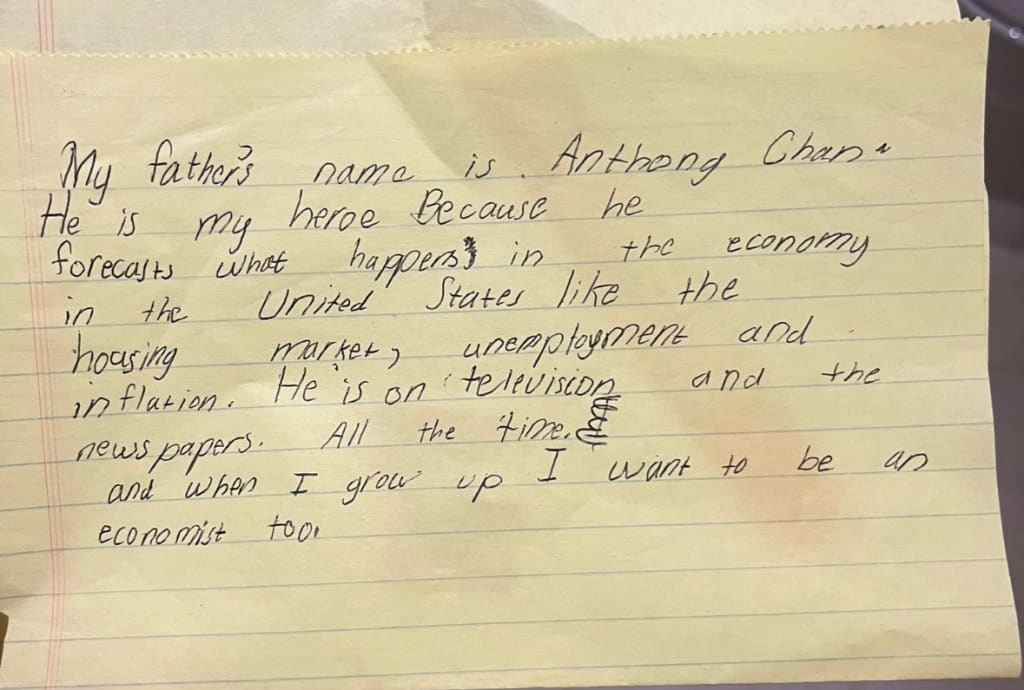 My father's name is Anthony Chan.
He is my heroe Because he
forecasts what happens in the economy
in the United States like the
housing market, unemployment and
inflation. He is on television and the
news papers. All the time.
and when I grow up I want to be an
economist too.